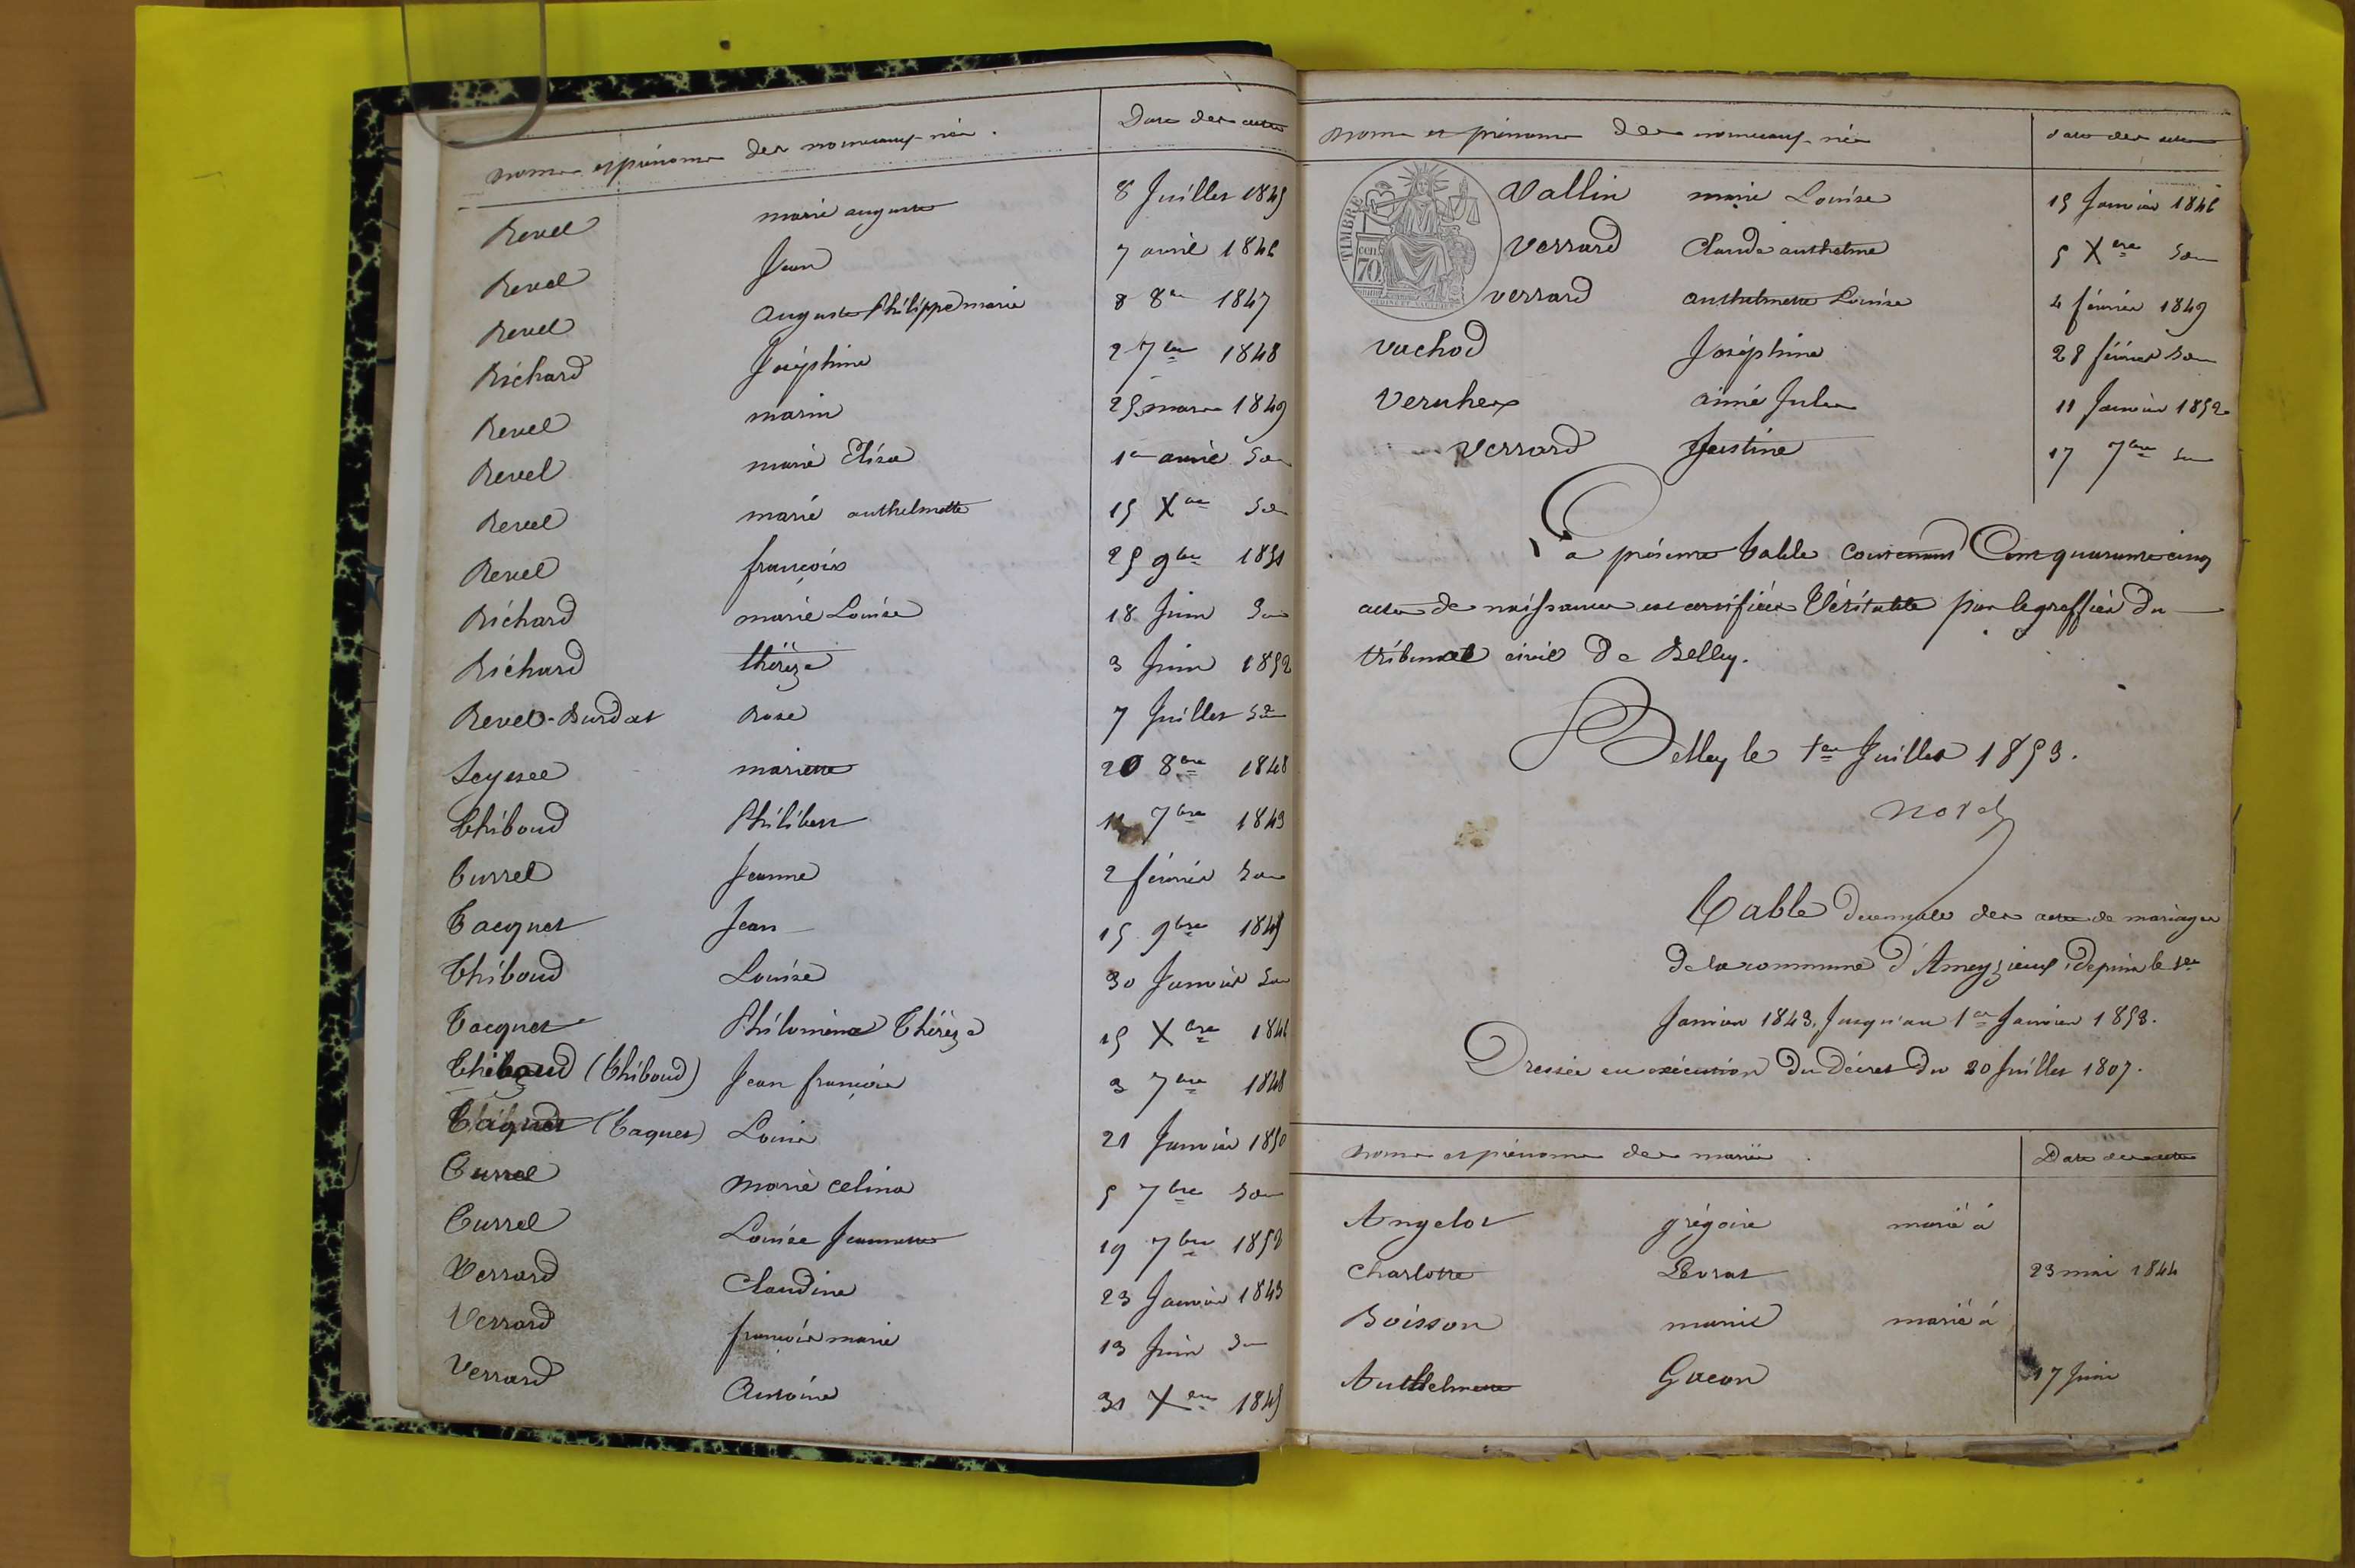 noms et prénoms des nouveaux-nés. Date des actes
Revel marie auguste 8 Juillet 1845
Revel Jean 7 avril 1846
Revel Auguste Philippe marie 8 8re 1847
Richard Joséphine 2 7bre 1848
Revel marin 25 mars 1849
Revel marie Elisa 1er avril
Revel marie anthelmette 15 Xre
Revel françois 25 9bre 1851
Richard marie Louise 18 Juin
Richard thérèze 3 Juin 1852
Revel-Burdat Rose 7 Juillet
Seyssel mariette 20 8bre 1848
Thiboud Philibert 11 7bre 1843
Turrel Jeanne 2 février
Tacquet Jean 15 9bre 1845
Thiboud Louise 30 Janvier
Tacquet Philomène Thérèze 15 Xbre 1846
Thiboud (Thiboud) Jean françois 3 7bre 1848
Taquet (Taquet) Louis 21 Janvier 1850
Turrel Marie celina 5 7bre
Turrel Louise Jeannette 19 7bre 1852
Verrard Claudine 23 Janvier 1843
Verrard françois marie 13 Juin
Verrard Antoine 31 Xbre 1845
noms et prénoms des nouveaux-nés date des actes
TIMBRE
70
Vallin marie Louise 15 Janvier 1846
Verrard Claude anthelme 5 Xbre
Verrard anthelmette Louise 4 février 1849
Vachod Joséphine 28 février
Vernhex aimé Jules 11 Janvier 1852
Verrard Justine 17 7bre
La présente table contenant Cent quarante cinq
actes de naissance est certifiée Véritable par le greffier du
tribunal civil de Belley.
Belley le 1er Juillet 1853.
Table décennale des actes de mariages
de la commune d'Ameyzieux, depuis le 1er
Janvier 1843, Jusqu'au 1er Janvier 1853.
Dressée en exécution du Décret du 20 Juillet 1807.
Noms et prénoms des mariés. Date des actes
Angelot grégoire marié à
Charlotte Levrat 23 mai 1844
Boisson marie marié à
Anthelmette Gacon 17 Juin